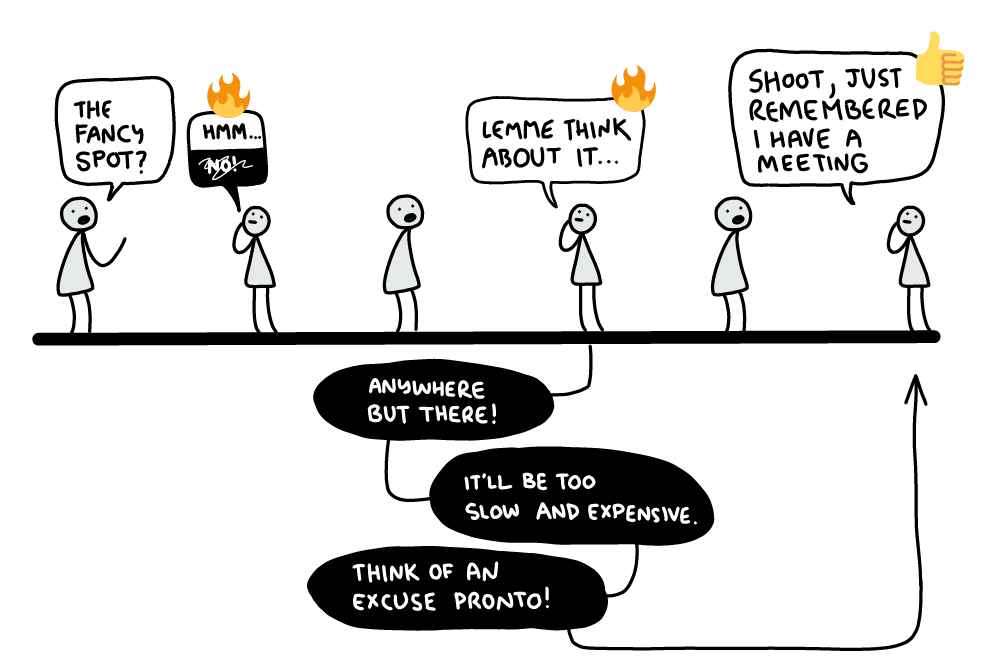 THE
FANCY
SPOT?
HMM...
NO!
LEMME THINK
ABOUT IT...
SHOOT, JUST
REMEMBERED
I HAVE A
MEETING
ANYWHERE
BUT THERE!
IT'LL BE TOO
SLOW AND EXPENSIVE.
THINK OF AN
EXCUSE PRONTO!